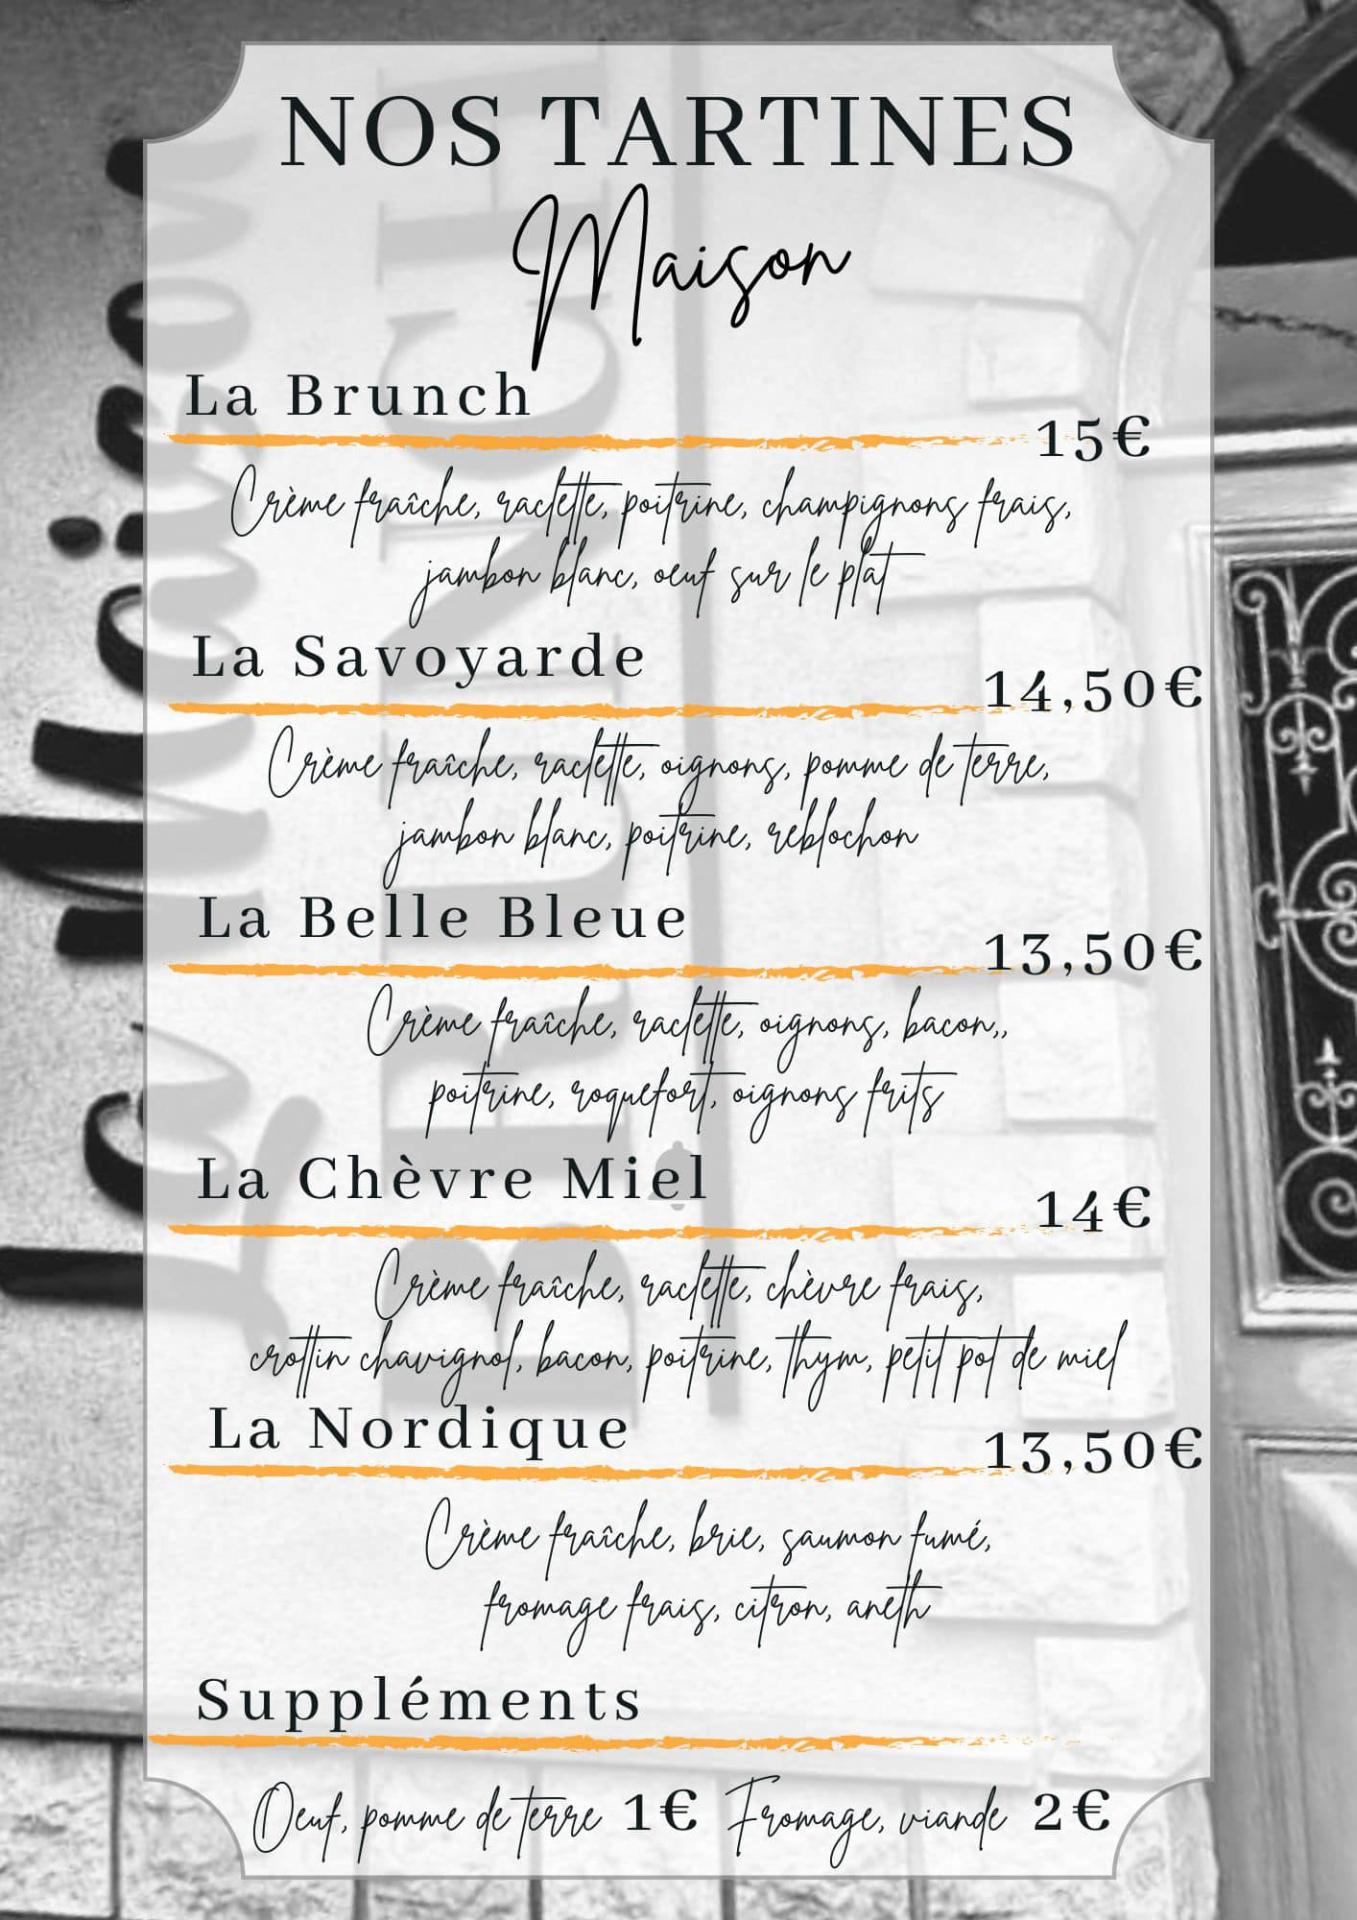 NOS TARTINES
Maison
La Brunch
15€
Crème fraîche, raclette, poitrine, champignons frais,
jambon blanc, oeuf sur le plat
La Savoyarde
14,50€
Crème fraîche, raclette, oignons, pomme de terre,
jambon blanc, poitrine, reblochon
La Belle Bleue
13,50€
Crème fraîche, raclette, oignons, bacon,,
poitrine, roquefort, oignons frits
La Chèvre Miel
14€
Crème fraîche, raclette, chèvre frais,
crottin chavignol, bacon, poitrine, thym, petit pot de miel
La Nordique
13,50€
Crème fraîche, brie, saumon fumé,
fromage frais, citron, aneth
Suppléments
Oeuf, pomme de terre 1€ Fromage, viande 2€
BRUNCH